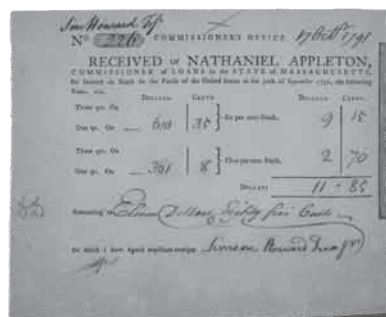 Simeon Howard
No. 226 COMMISSIONER'S OFFICE, 17 Octr. 1791
RECEIVED OF NATHANIEL APPLETON,
COMMISSIONER OF LOANS IN THE STATE OF MASSACHUSETTS,
for Interest on Stock in the Funds of the United States to the 30th of September 1791, the following
DOLLARS. CENTS. DOLLARS. CENTS.
Three qrs. On
One qr. On 610 35 } Six per cent Stock, 9 15
Three qrs. On
One qr. On 361 8 } Three per cent Stock, 2 70
DOLLARS 11 - 85
Amounting to Eleven Dollars Eighty five Cents
for which I have signed duplicate receipts Simeon Howard